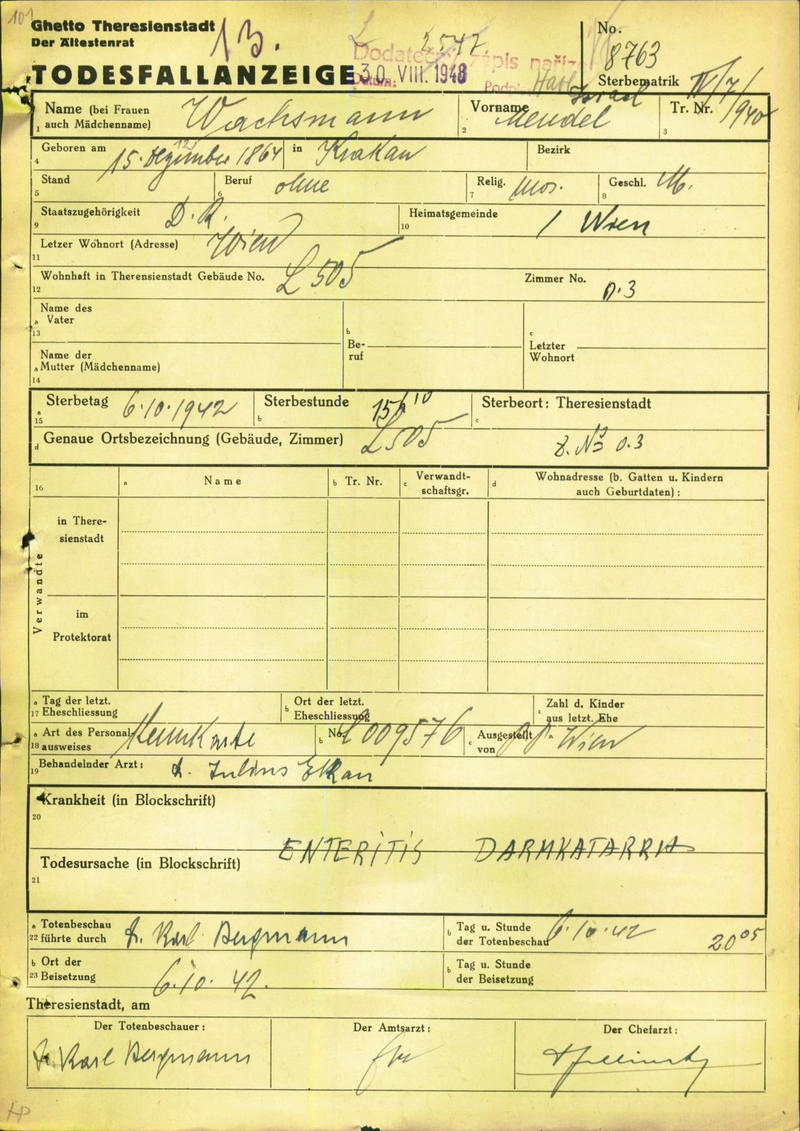 Ghetto Theresienstadt
Der Ältestenrat
13.
2547
No. 8763
TODESFALLANZEIGE
30. VIII. 1948
Sterbematrik
Name (bei Frauen auch Mädchenname) Wachsmann
Vorname Mendel Israel
Tr. Nr. IV/7/ /940
1 2 3
Geboren am 15. Dezember 1864 in Krakau Bezirk
4
Stand Beruf ohne Relig. mos. Geschl. M.
5 6 7 8
Staatszugehörigkeit D. R. Heimatsgemeinde Wien
9 10
Letzer Wohnort (Adresse) Wien
11
Wohnhaft in Therensienstadt Gebäude No. L 505 Zimmer No. 0.3
12
Name des
a Vater
13
b Be-ruf
c Letzter Wohnort
Name der
a Mutter (Mädchenname)
14
a Sterbetag 6.10.1942 b Sterbestunde 15 10 c Sterbeort: Theresienstadt
15
d Genaue Ortsbezeichnung (Gebäude, Zimmer) L 505 Z. No 0.3
16 a Name b Tr. Nr. c Verwandt-schaftsgr. d Wohnadresse (b. Gatten u. Kindern auch Geburtdaten) :
Verwandte
in There-
sienstadt
im
Protektorat
a Tag der letzt. b Ort der letzt. c Zahl d. Kinder
17 Eheschliessung Eheschliessung aus letzt. Ehe
a Art des Personal- Kennkarte b No. L 009576 c Ausgestellt P.P. Wien
18 ausweises von
19 Behandelnder Arzt: Dr. Julius Elkan
Krankheit (in Blockschrift)
20
ENTERITIS DARMKATARRH
Todesursache (in Blockschrift)
21
a Totenbeschau Dr. Karl Bergmann b Tag u. Stunde 6.10.42
22 führte durch der Totenbeschau 20 05
b Ort der b Tag u. Stunde
23 Beisetzung 6.10.42. der Beisetzung
Theresienstadt, am
Der Totenbeschauer: Der Amtsarzt: Der Chefarzt:
Dr. Karl Bergmann